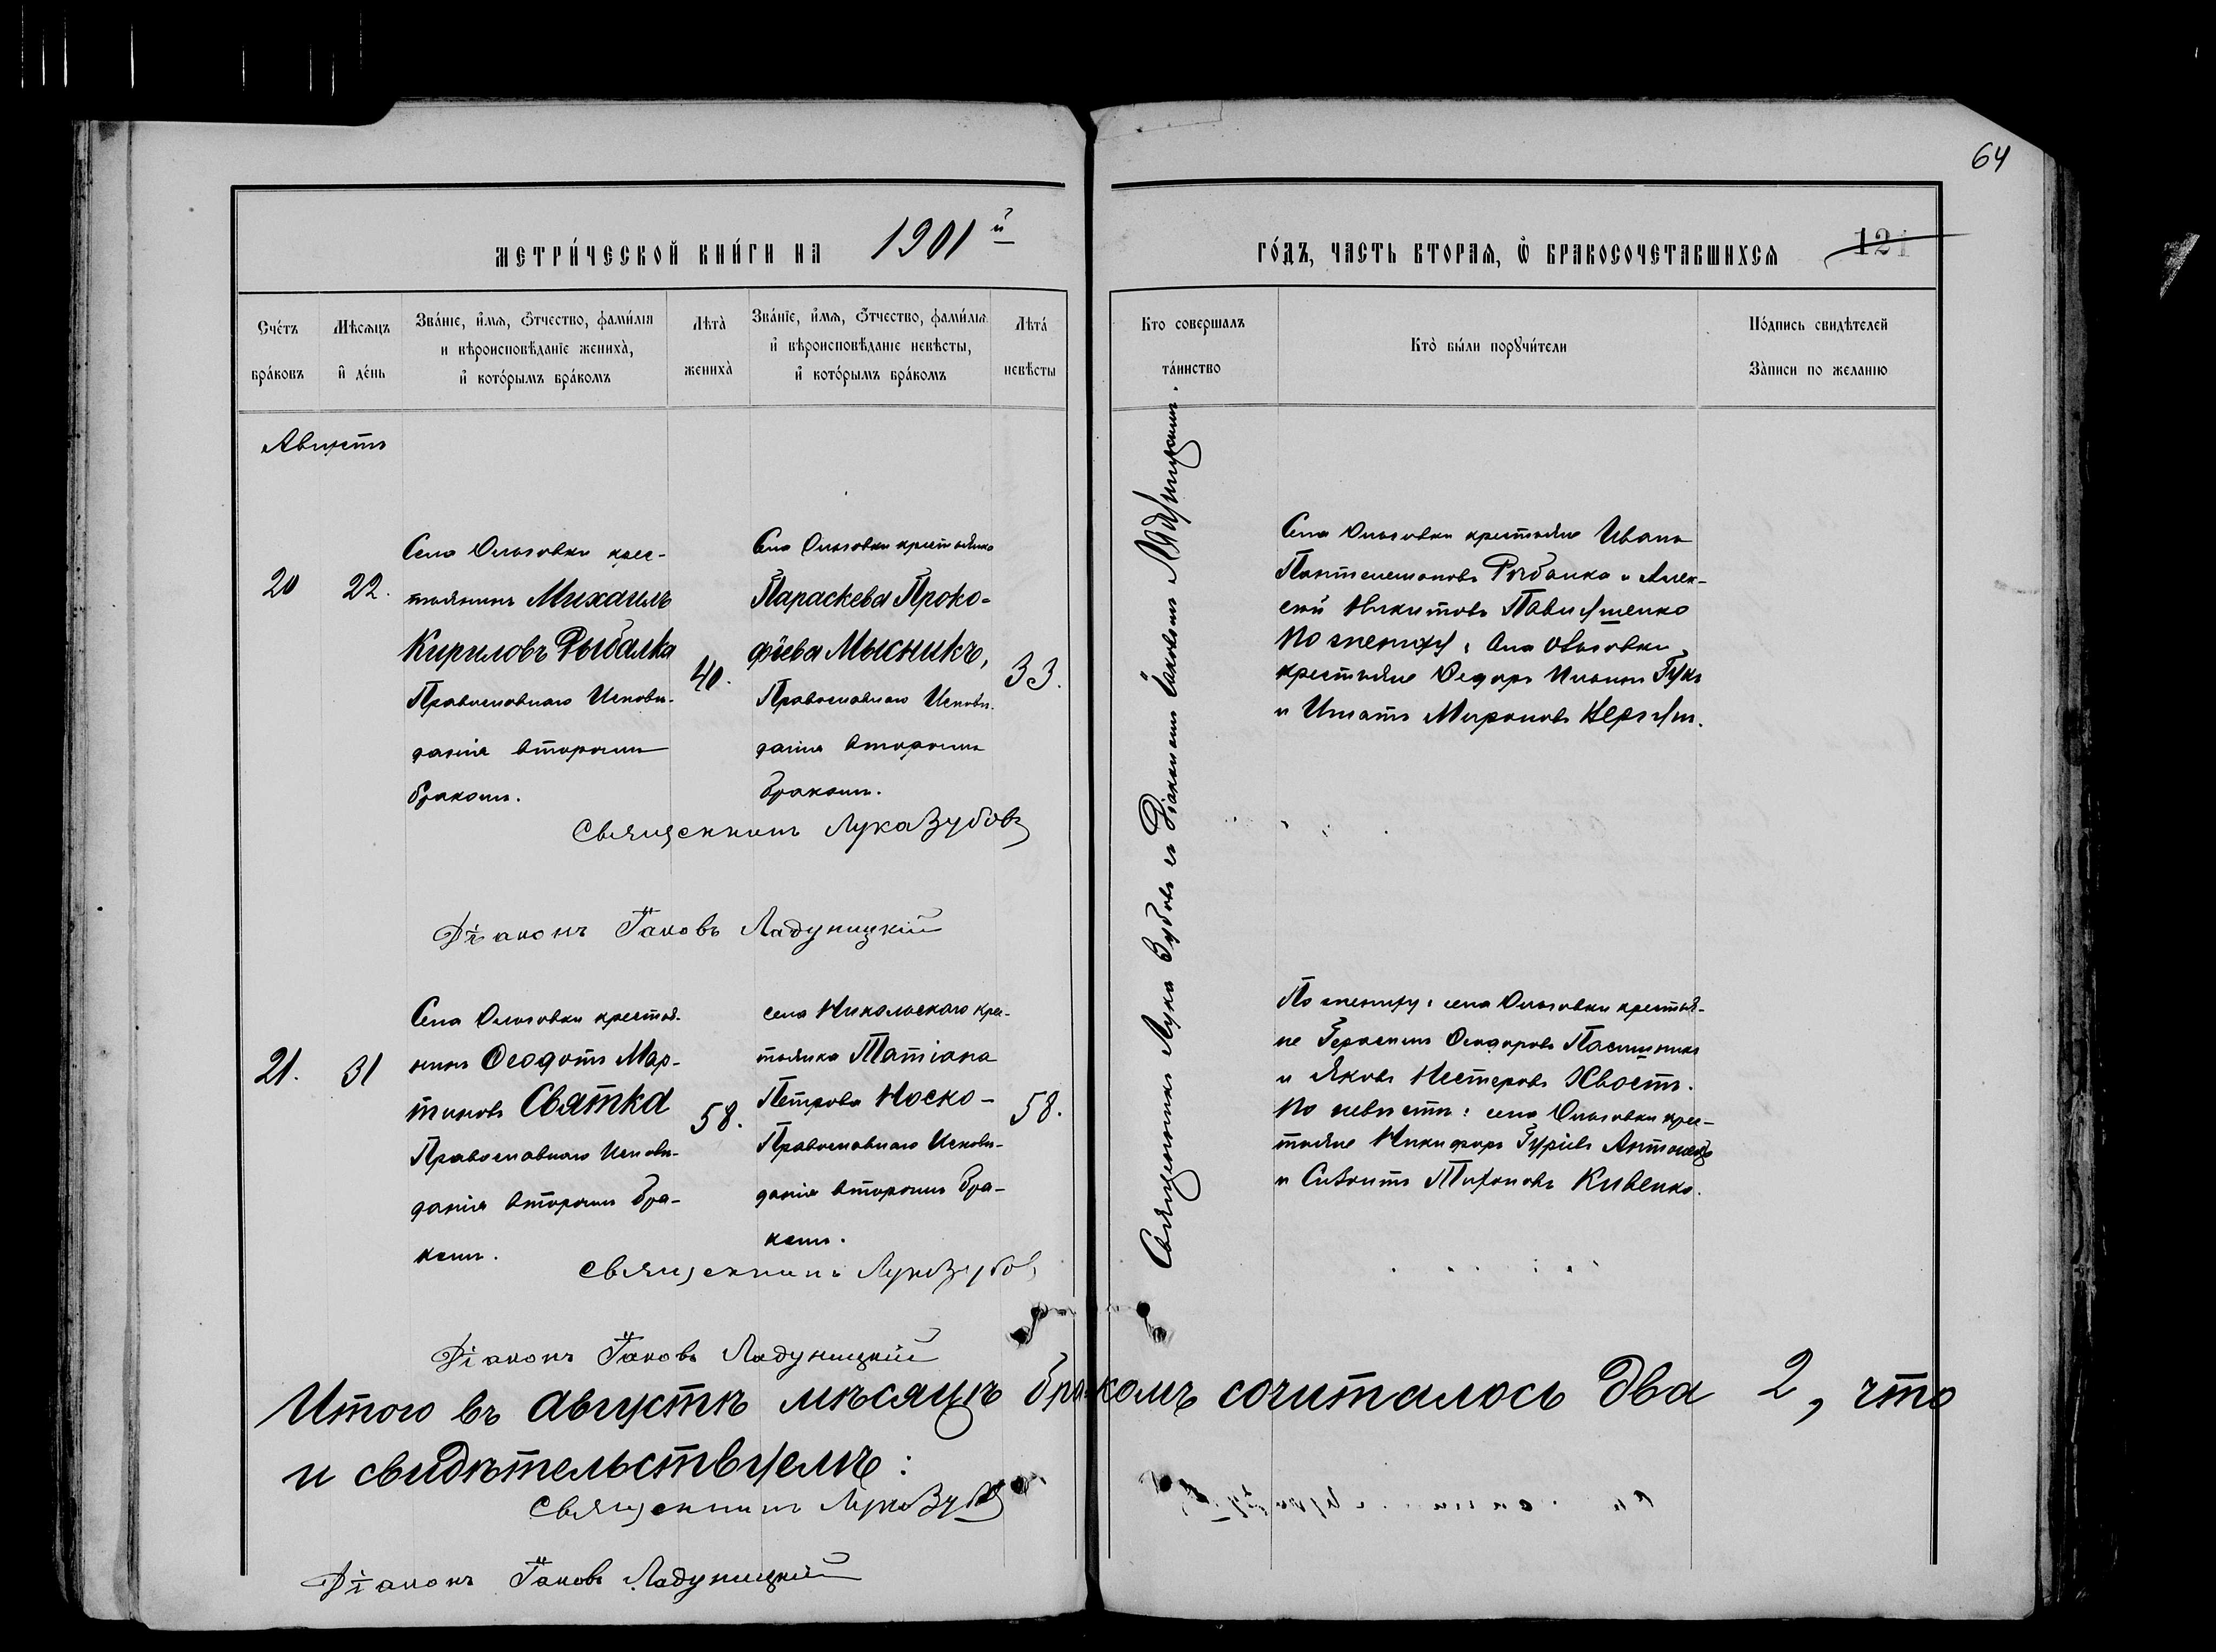 64
МЕТРИ́ЧЕСКОЙ КНИ́ГИ НА 1901й
ГО́ДЪ, ЧАСТЬ ВТОРАѦ, Ѡ БРАКОСОЧЕТАВШИХСѦ 121
Сче́тъ бра́ковъ
Мѣсяцъ и де́нь
Зва́нїе, и́мѧ, о́тчество, фами́лїѧ
и вѣроисповѣданїе жениха̀,
и кото́рымъ бра́комъ
Лѣта̀ жениха̀
Зва́нїе, и́мѧ, о́тчество, фами́лїѧ
и вѣроисповѣданїе невѣсты,
и кото́рымъ бра́комъ
Лѣта́ невѣсты
Кто совершалъ
та́инство
Кто̀ бы́ли порꙋчи́тели
По́дпись свидѣтелей
За̀писи по желанїю
Августъ
20
22.
Села Ольговки крес-
тьянинъ Михаилъ
Кириловъ Рыбалка
Православнаго Исповѣ-
данія вторымъ
бракомъ.
40.
Села Ольговки крестьянка
Параскева Проко-
фіева Мысникъ,
Православнаго Исповѣ-
данія вторымъ
бракомъ.
33.
Священникъ Лука Зубовъ съ Діакономъ Іаковомъ Ладуницкимъ.
Села Ольговки крестьяне Иванъ
Пантелеимоновъ Рыбалка и Алек-
сѣй Никитовъ Павлушенко
По жениху: Села Ольговки
крестьяне Федоръ Гукъ
и Игнатъ Мироновъ
Священникъ Лука Зубовъ
Діаконъ Іаковъ Ладуницкій
21.
31
Села Ольговки крестья-
нинъ Ѳеодотъ Мар-
тиновъ Святка
Православнаго Исповѣ-
данія вторымъ бра-
комъ.
58.
села Никольскаго кре-
стьянка Татіана
Петрова Носко-
Православнаго Исповѣ-
данія вторымъ бра-
комъ.
58.
По жениху: села Ольговки крестья-
не Герасимъ Ѳеодоровъ Пасішникъ
и Яковъ Нестеровъ Хвостъ.
По невѣстѣ: села Ольговки крес-
тьяне Никифоръ Гуріевъ
и Тихоновъ Кивенко.
Священникъ Лука Зубовъ
Діаконъ Іаковъ Ладуницкій
Итого въ августѣ мѣсяцѣ бракомъ сочиталось два 2, что
и свидѣтельствуемъ:
Священникъ Лука Зубовъ
Діаконъ Іаковъ Ладуницкій